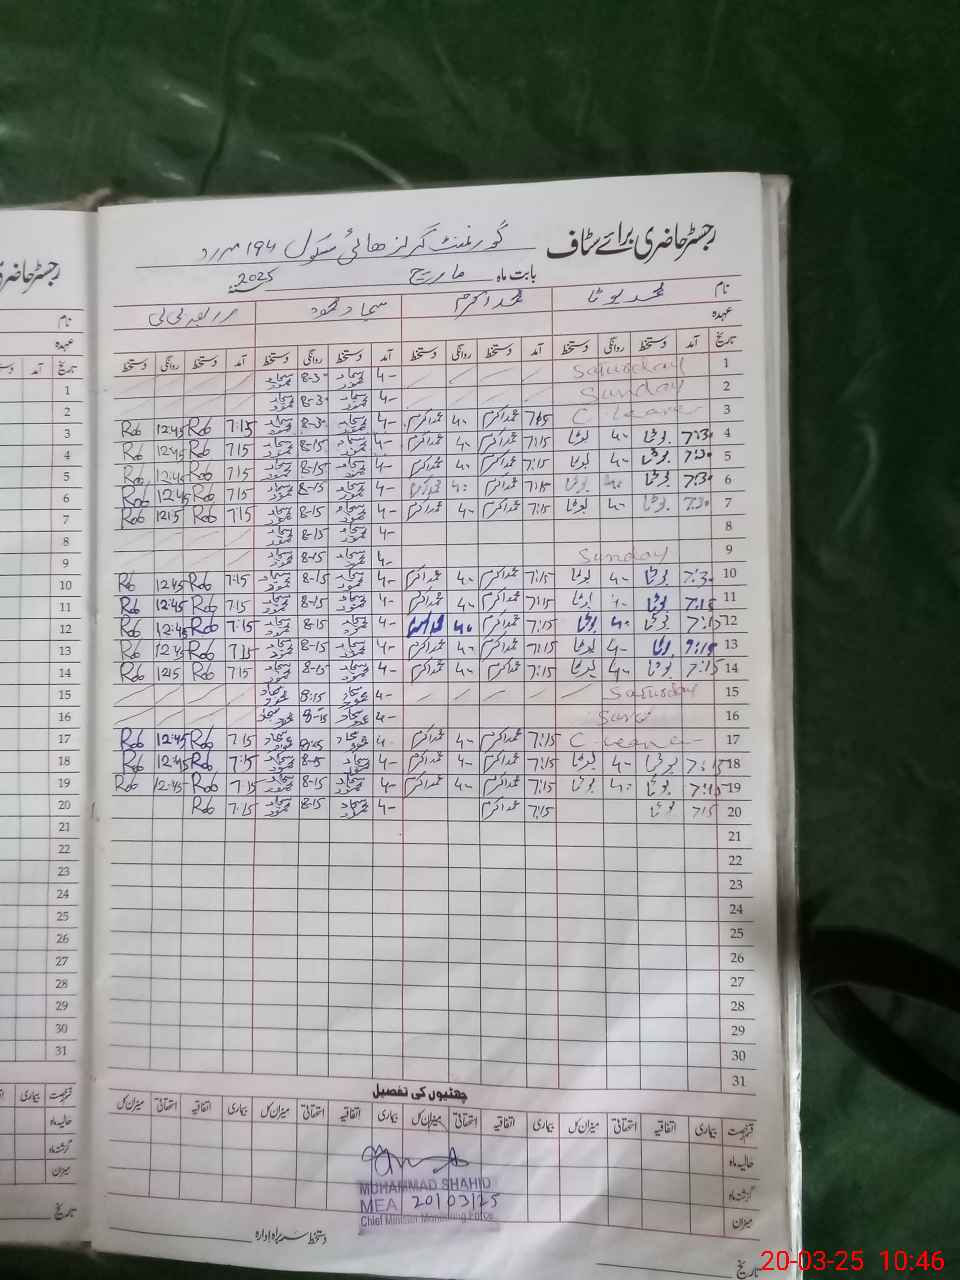 رجسٹر حاضری برائے سٹاف گورنمنٹ گرلز ہائی سکول 194 م ر د
بابت ماہ مارچ 2025
نام محمد بوٹا محمد اکرم سجاد محمود
عہدہ
تاریخ آمد دستخط روانگی دستخط آمد دستخط روانگی دستخط آمد دستخط روانگی دستخط آمد دستخط روانگی دستخط
1 Saturday 4- سجاد محمود 8-30
2 Sunday 4- سجاد محمود 8-30
3 C. Leave محمد اکرم 4- محمد اکرم 4- سجاد محمود 8-30 سجاد محمود 7:15 Rob 12:45 Rob
4 7:30 بوٹا 4- بوٹا 7:15 محمد اکرم 4- محمد اکرم 4- سجاد محمود 8-15 سجاد محمود 7:15 Rob 12:45 Rob
5 7:30 بوٹا 4- بوٹا 7:15 محمد اکرم 4- محمد اکرم 4- سجاد محمود 8-15 سجاد محمود 7:15 Rob 12:45 Rob
6 7:30 بوٹا 4- بوٹا 7:15 محمد اکرم 4- محمد اکرم 4- سجاد محمود 8-15 سجاد محمود 7:15 Rob 12:45 Rob
7 7:30 بوٹا 4- بوٹا 7:15 محمد اکرم 4- محمد اکرم 4- سجاد محمود 8-15 سجاد محمود 7:15 Rob 1215 Rob
8 4- سجاد محمود 8-15 سجاد محمود
9 Sunday 4- سجاد محمود 8-15 سجاد محمود
10 7:30 بوٹا 4- بوٹا 7:15 محمد اکرم 4- محمد اکرم 4- سجاد محمود 8-15 سجاد محمود 7:15 Rob 12:45 Rob
11 7:15 بوٹا 4- بوٹا 7:15 محمد اکرم 4- محمد اکرم 4- سجاد محمود 8-15 سجاد محمود 7:15 Rob 12:45 Rob
12 7:15 بوٹا 4- بوٹا 7:15 محمد اکرم 4- محمد اکرم 4- سجاد محمود 8-15 سجاد محمود 7:15 Rob 12:45 Rob
13 7:15 بوٹا 4- بوٹا 7:15 محمد اکرم 4- محمد اکرم 4- سجاد محمود 8-15 سجاد محمود 7:15 Rob 12:45 Rob
14 7:15 بوٹا 4- بوٹا 7:15 محمد اکرم 4- محمد اکرم 4- سجاد محمود 8-15 سجاد محمود 7:15 Rob 1215 Rob
15 Saturday 4- سجاد محمود 8:15 سجاد محمود
16 4- سجاد محمود 8-15 سجاد محمود
17 C. Leave 7:15 محمد اکرم 4- محمد اکرم 4- سجاد محمود سجاد محمود 7:15 Rob 12:45 Rob
18 7:15 بوٹا 4- بوٹا 7:15 محمد اکرم 4- محمد اکرم 4- سجاد محمود 8-15 سجاد محمود 7:15 Rob 12:45 Rob
19 7:15 بوٹا 4- بوٹا 7:15 محمد اکرم 4- محمد اکرم 4- سجاد محمود 8-15 سجاد محمود 7:15 Rob 12:45 Rob
20 7:15 بوٹا 7:15 محمد اکرم 4- سجاد محمود 8-15 سجاد محمود 7:15 Rob
21
22
23
24
25
26
27
28
29
30
31
چھٹیوں کی تفصیل
قسم رخصت بیماری اتفاقیہ استحقاقی میزان کل بیماری اتفاقیہ استحقاقی میزان کل بیماری اتفاقیہ استحقاقی میزان کل بیماری اتفاقیہ استحقاقی میزان کل
حالیہ ماہ
گزشتہ ماہ
میزان
MUHAMMAD SHAHID
MEA 20/03/25
Chief Minister Monitoring Force
دستخط سربراہ ادارہ
تاریخ
رجسٹر حاضری
نام
عہدہ
تاریخ
1
2
3
4
5
6
7
8
9
10
11
12
13
14
15
16
17
18
19
20
21
22
23
24
25
26
27
28
29
30
31
قسم رخصت بیماری
حالیہ ماہ
گزشتہ ماہ
میزان
تاریخ
20-03-25 10:46